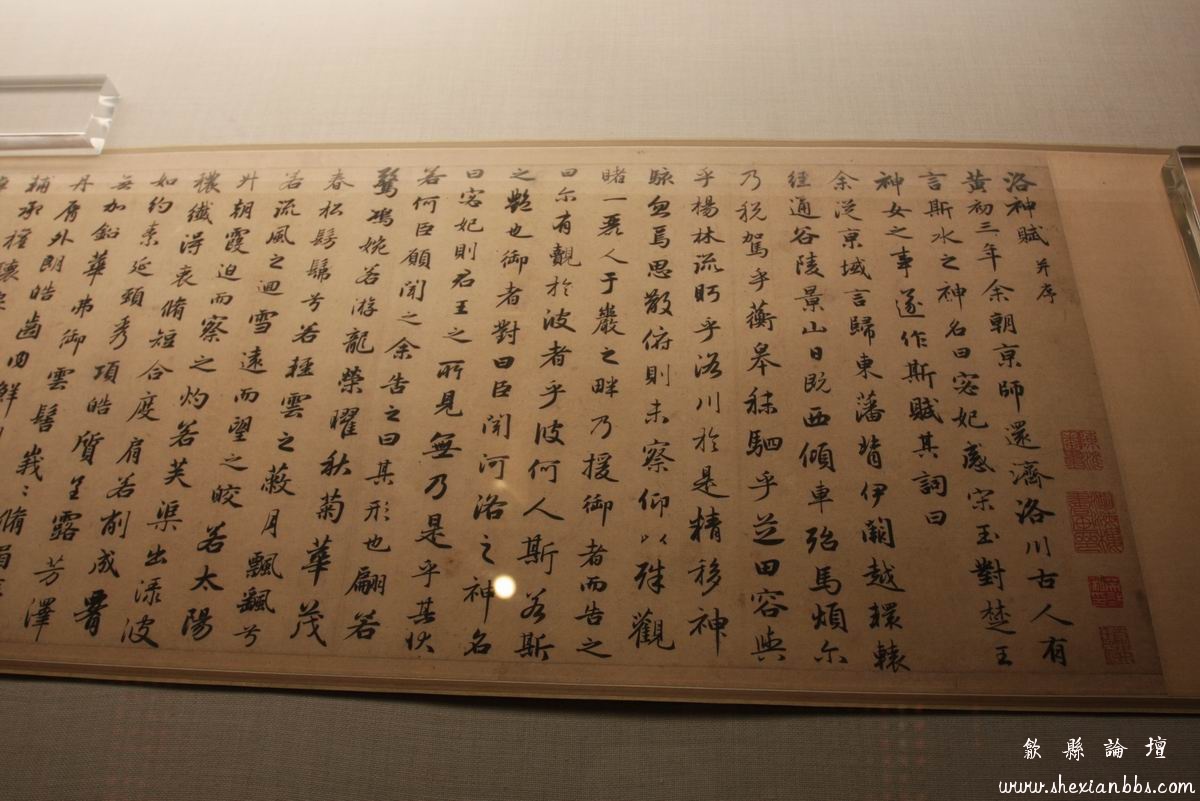 洛神賦 并序
黄初三年余朝京師還濟洛川古人有
言斯水之神名曰宓妃感宋玉對楚王
神女之事遂作斯賦其詞曰
余從京域言歸東藩背伊闕越轘轅
經通谷陵景山日既西傾車殆馬煩尔
乃税駕乎蘅皋秣駟乎芝田容與
乎楊林流眄乎洛川於是精移神
駭忽焉思散俯則未察仰以殊觀
睹一麗人于巖之畔乃援御者而告之
曰尔有覿於彼者乎彼何人斯若斯
之艷也御者對曰臣聞河洛之神名
曰宓妃則君王之所見無乃是乎其状
若何臣願聞之余告之曰其形也翩若
驚鴻婉若游龍榮曜秋菊華茂
春松髣髴兮若輕雲之蔽月飄飖兮
若流風之迴雪遠而望之皎若太陽
升朝霞迫而察之灼若芙渠出渌波
穠纖得衷脩短合度肩若削成腰
如約素延頸秀項皓質呈露芳澤
無加鉛華弗御雲髻峩峩脩眉
丹脣外朗皓齒内鮮
輔承權瓌
歙縣論壇
www.shexianbbs.com